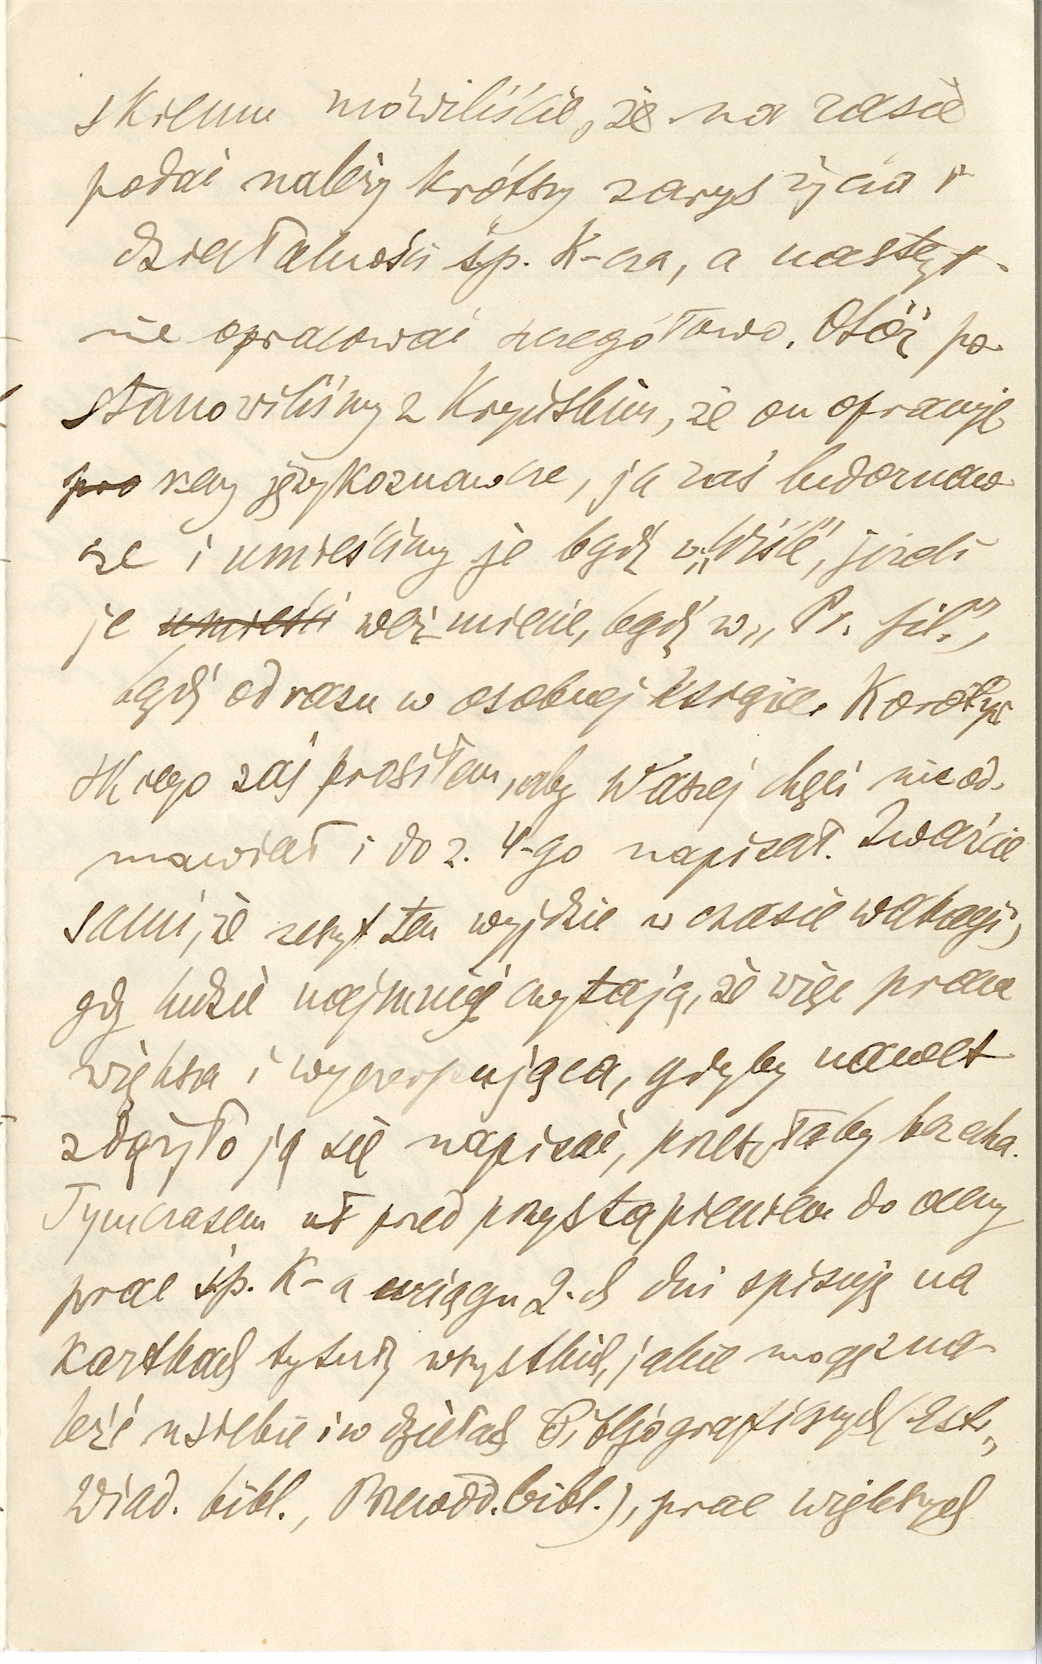 skiemu mówiliście, że na razie
podać należy krótszy zarys życia i
działalności śp. K-cza, a następ-
nie opracować szczegółowo. Otóż po-
stanowiliśmy z Kryńskim, że on opracuje
pro rzeczy językoznawcze, ja zaś ludoznaw-
cze i umieścimy je bądź w „Wiśle", jeżeli
je umieści weźmiecie, bądź w „Pr. fil.",
bądź od razu w osobnej książce. Korotyń-
skiego zaś prosiłem, aby Waszej chęci nie od-
mawiał i do z. 4-go napisał. Zważcie
sami, że zeszyt ten wyjdzie w czasie wakacji,
gdy ludzie najmniej czytają, że więc praca
większa i wyczerpująca, gdyby nawet
zdążyło ją się napisać, przeszłaby bez echa.
Tymczasem już przed przystąpieniem do oceny
prac śp. K-a w ciągu 2-ch dni spisuję na
kartkach tytuły wszystkich, jakie mogę zna-
leźć u siebie i w dziełach bibljograficznych (Estr.,
Wiad. bibl., Przewod. bibl.), prac większych